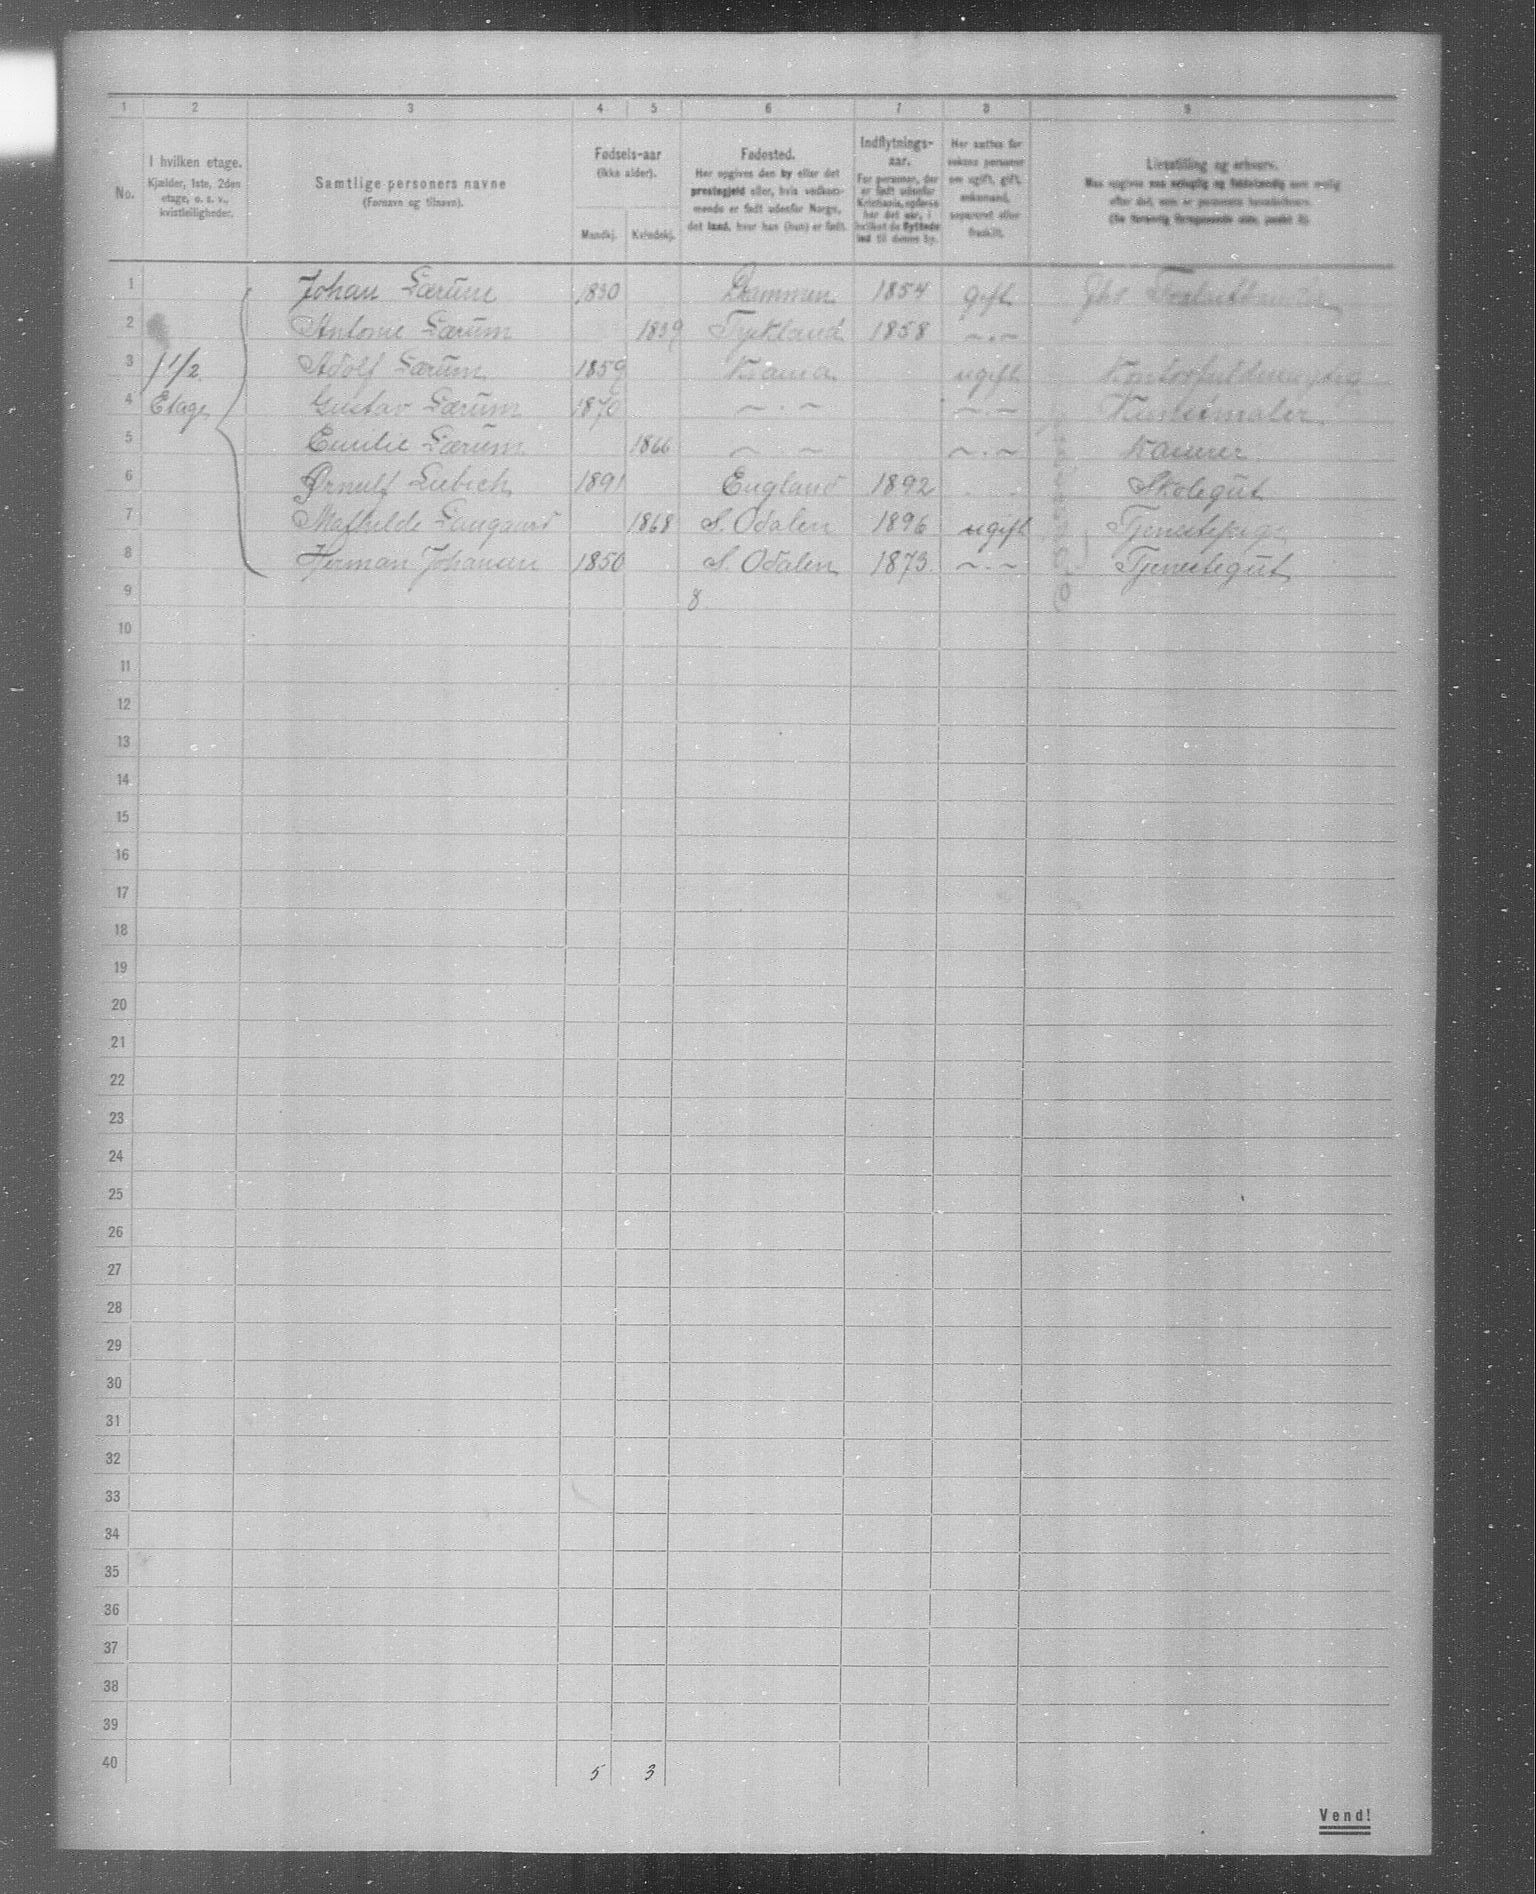 1 2 3 4 5 6 7 8 9
No.
I hvilken etage.
Kjælder, 1ste, 2den
etage, o. s. v.,
kvistleiligheder.
Samtlige personers navne
(Fornavn og tilnavn).
Fødsels-aar
(ikke alder).
Mandkj. Kvindekj.
Fødested.
Her opgives den by eller det
prestegjeld eller, hvis vedkom-
mende er født udenfor Norge,
det land, hvor han (hun) er født.
Indflytnings-
aar.
For personer, der
er født udenfor
Kristiania, opføres
her det aar, i
hvilket de flyttede
ind til denne by.
Her anføres for
voksne personer
om ugift, gift,
enkemand,
separeret eller
fraskilt.
Livsstilling og erhverv.
1 Johan Lærum 1830 Drammen 1854 gift
2 Antonie Lærum 1839 Tyskland 1858 〃
3 1 1/2 Adolf Lærum 1859 Kr.ania ugift Kontorfuldmægtig
4 Etage Gustav Lærum 1870 〃 〃 Kunstmaler
5 Emilie Lærum 1866 〃 〃
6 Ørnulf Liebich 1891 England 1892 Skolegut
7 Mathilde Langaard 1868 S. Odalen 1896 ugift Tjenestepige
8 Herman Johansen 1850 S. Odalen 1873 〃 Tjenestegut
9 8
10
11
12
13
14
15
16
17
18
19
20
21
22
23
24
25
26
27
28
29
30
31
32
33
34
35
36
37
38
39
40 5 3
Vend!